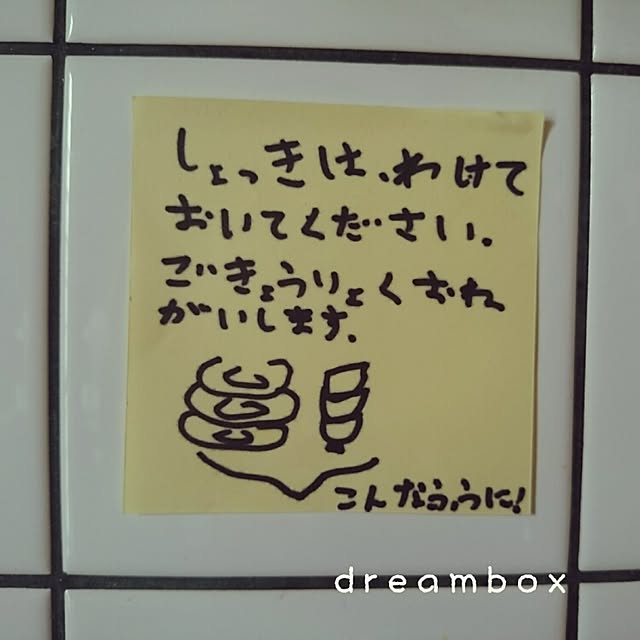 しょっきは、わけて
おいてください。
ごきょうりょくおね
がいします。
こんなふうに!
dreambox